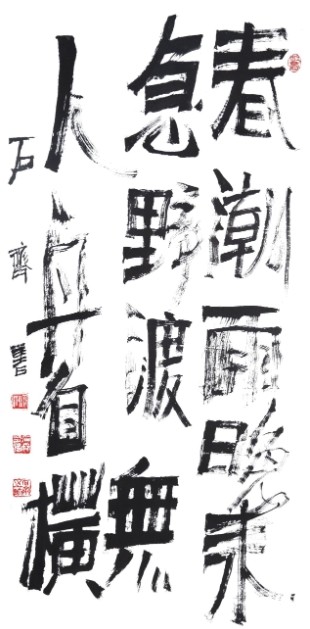 春潮雨晚来
急野渡無
人舟自橫
石齊書